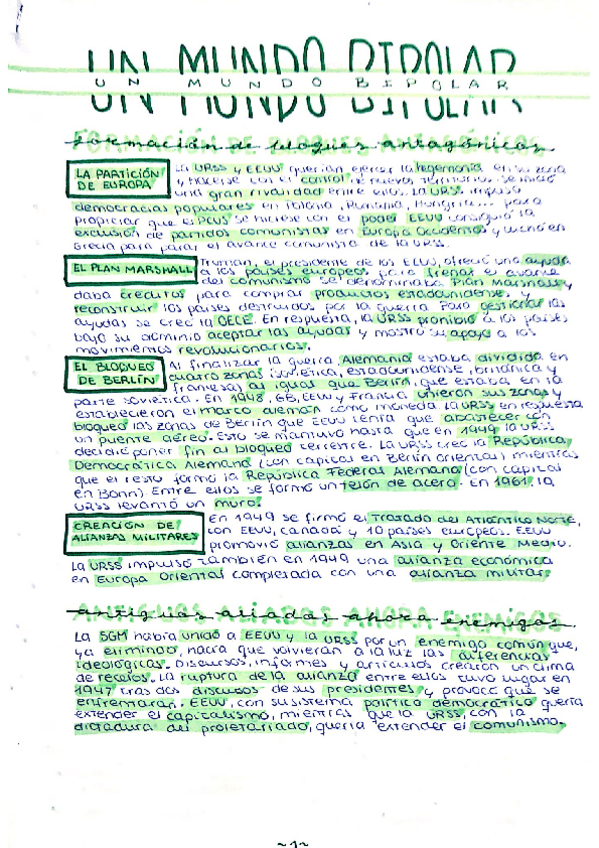 UN MUNDO BIPOLAR
UN MUNDO BIPOLAR
Formación de bloques antagónicos
LA PARTICIÓN DE EUROPA
La URSS y EEUU querían ejercer la hegemonía en su zona
y hacerse con el control el nuevo territorio. Se inició
una gran rivalidad entre ellos. La URSS impuso
democracias populares en Polonia, Rumanía, Hungría... para
propiciar que el PCUS se hiciese con el poder EEUU consiguió la
exclusión de partidos comunistas en Europa Occidental y luchó en
Grecia para parar el avance comunista de la URSS.
EL PLAN MARSHALL
Truman, el presidente de los EEUU, ofreció una ayuda
a los países europeos para frenar el avance
del comunismo se denominaba Plan Marshall y
daba créditos para comprar productos estadounidense, y
reconstruir los países destruidos por la guerra. Para gestionar las
ayudas se creó la OECE. En respuesta, la URSS prohibió a los países
bajo su dominio aceptar las ayudas y mostró su apoyo a los
movimientos revolucionarios.
EL BLOQUEO DE BERLÍN
Al finalizar la guerra, Alemania estaba dividida en
cuatro zonas (soviética, estadounidense, británica y
francesa) al igual que Berlín, que estaba en la
parte soviética. En 1948, GB, EEUU y Francia unieron sus zonas y
establecieron el marco alemán como moneda. La URSS en respuesta
bloqueó las zonas de Berlín que EEUU tenía que abastecer con
un puente aéreo. Esto se mantuvo hasta que en 1949 la URSS
decidió poner fin al bloqueo terrestre. La URSS creó la República
Democrática Alemana (con capital en Berlín oriental) mientras
que el resto formó la República Federal Alemana (con capital
en Bonn) Entre ellos se formó un telón de acero. En 1961, la
URSS levantó un muro.
CREACIÓN DE ALIANZAS MILITARES
En 1949 se firmó el Tratado del Atlántico Norte,
con EEUU, Canadá y 10 países europeos. EEUU
promovió alianzas en Asia y Oriente Medio.
La URSS impulsó también en 1949 una alianza económica
en Europa Oriental completada con una alianza militar.
Antiguos aliados ahora enemigos
La SGM había unido a EEUU y la URSS por un enemigo común que,
ya eliminado, hacía que volvieran a la luz las diferencias
ideológicas. Discursos, informes y artículos crearon un clima
de recelos. La ruptura de la alianza entre ellos tuvo lugar en
1947 tras dos discursos de sus presidentes y provocó que se
enfrentaran. EEUU, con su sistema político democrático quería
extender el capitalismo, mientras que la URSS, con la
dictadura del proletariado, quería extender el comunismo.
~1~